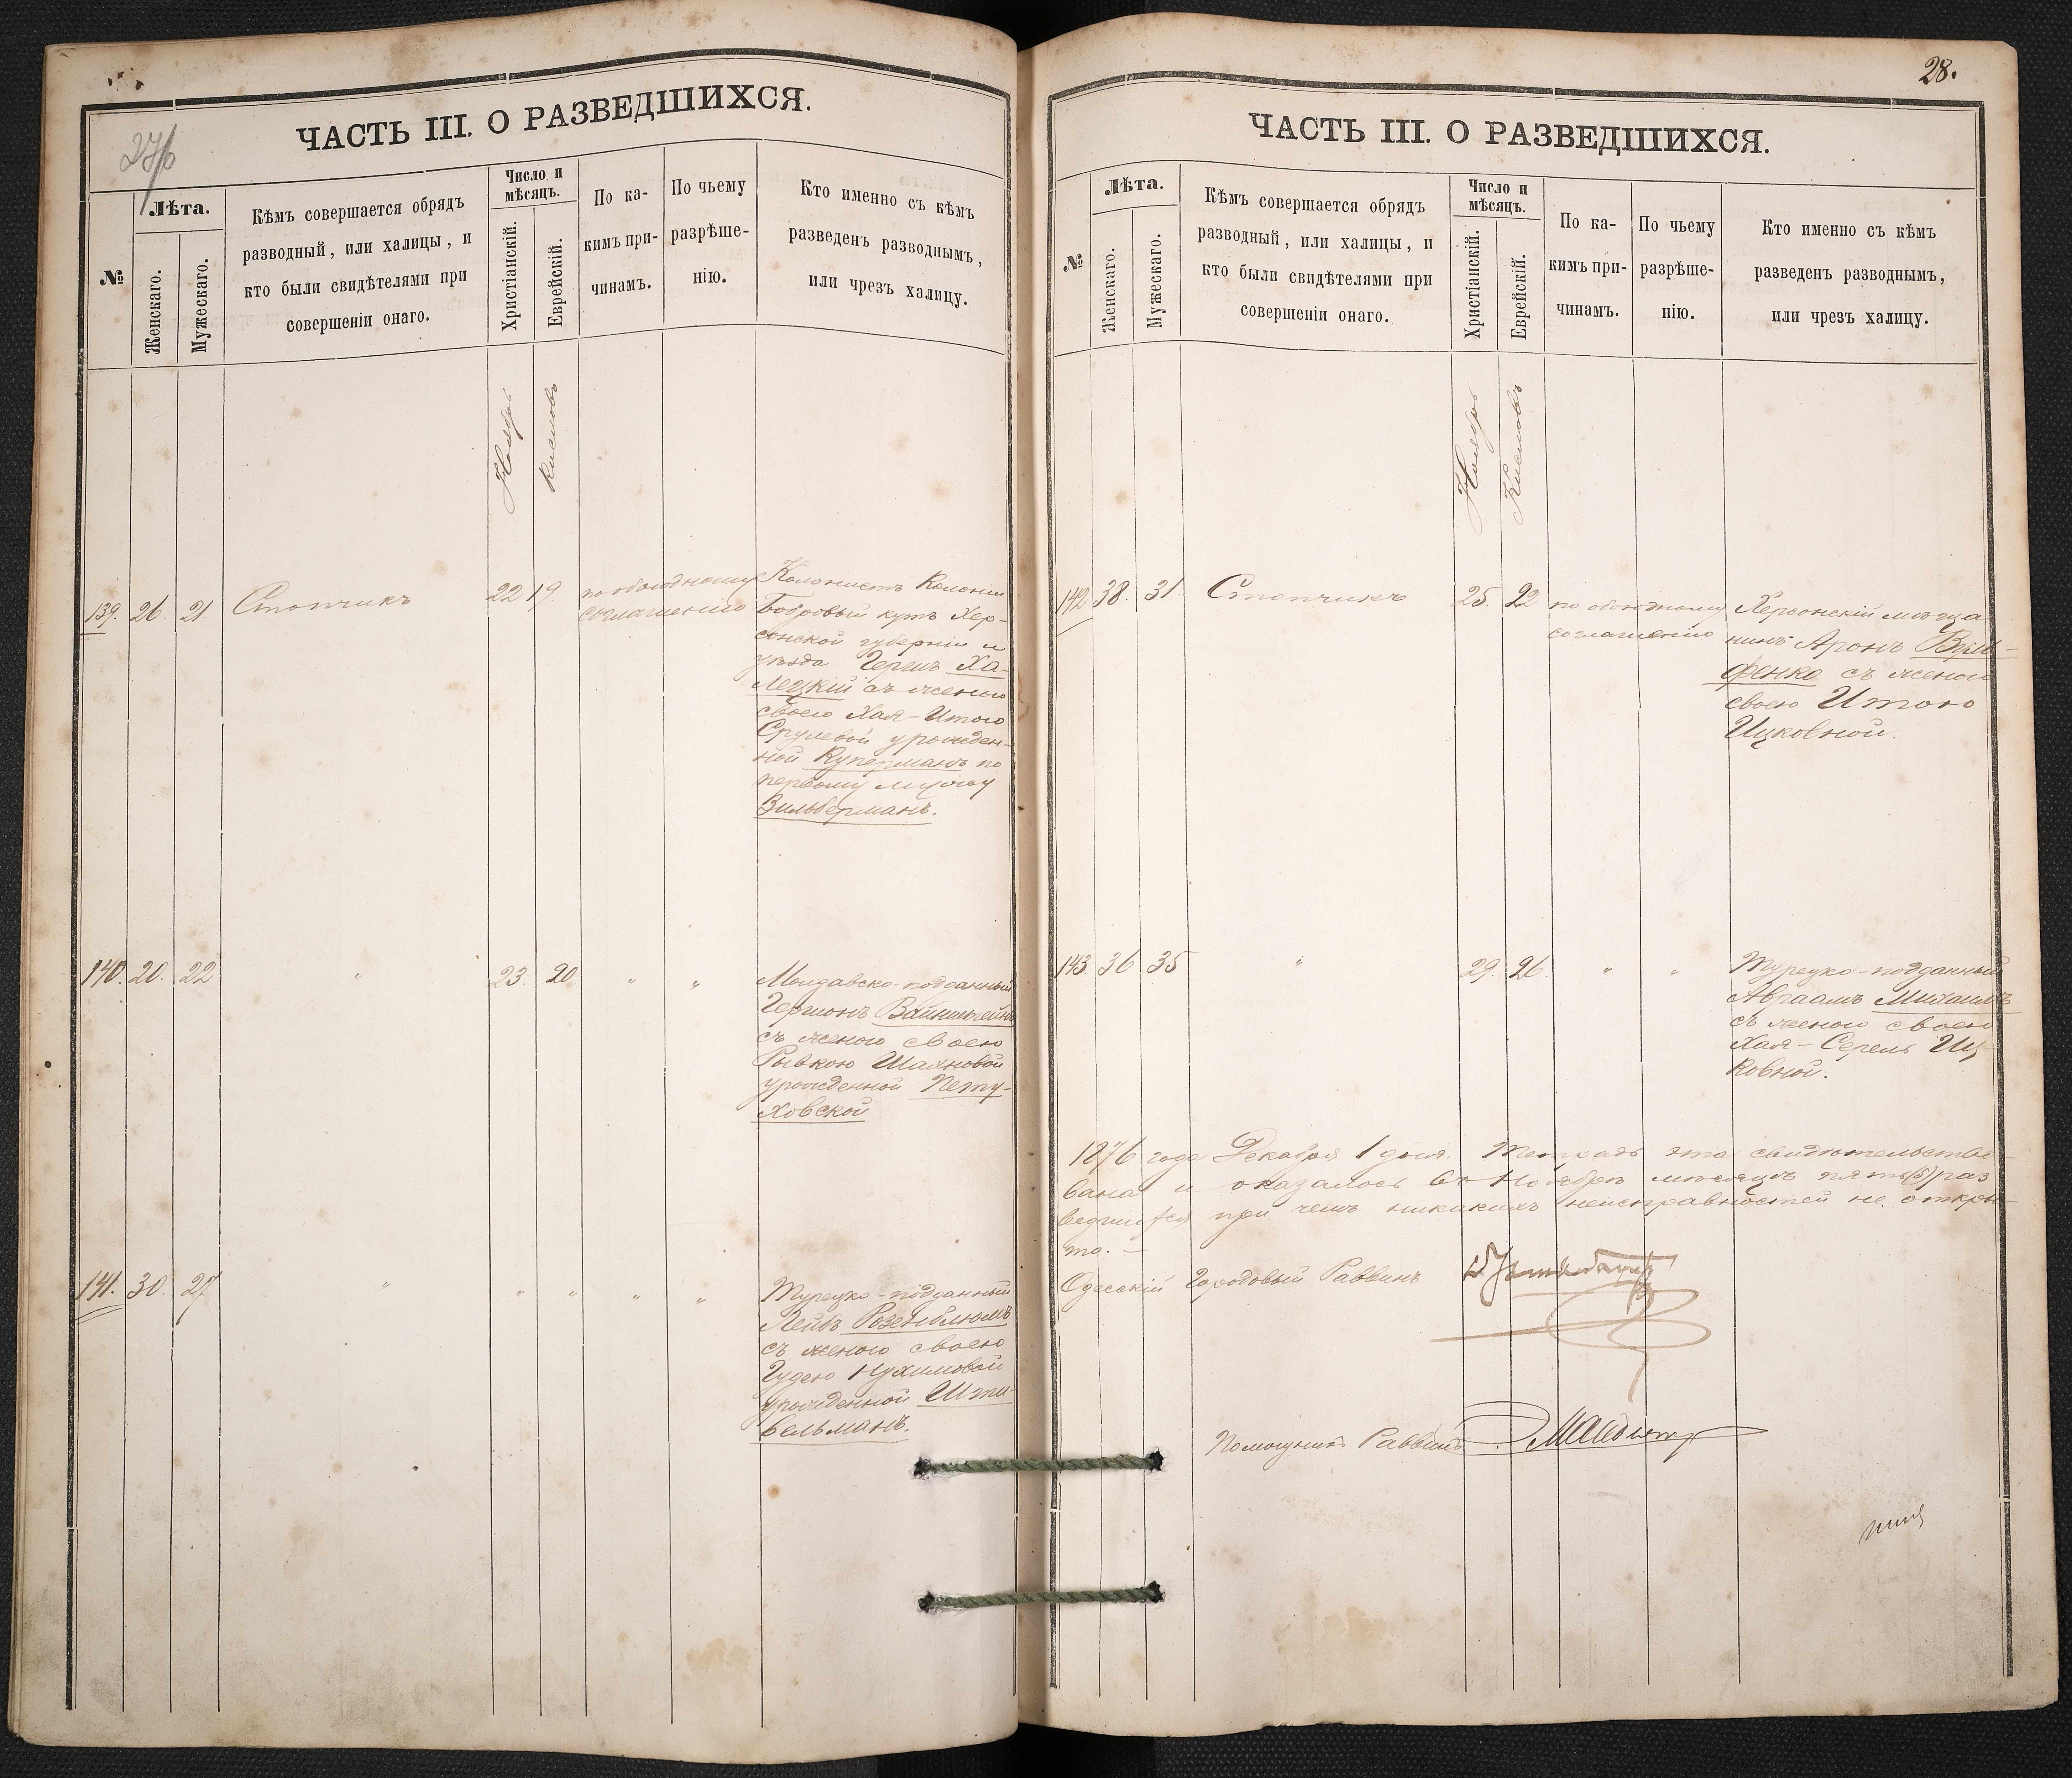 ЧАСТЬ III. О РАЗВЕДШИХСЯ.
№
Лѣта.
Женскаго.
Мужескаго.
Кѣмъ совершается обрядъ
разводный, или халицы, и
кто были свидѣтелями при
совершеніи онаго.
Число и
мѣсяцъ.
Христіанскій.
Еврейскій.
По ка-
кимъ при-
чинамъ.
По чьему
разрѣше-
нію.
Кто именно съ кѣмъ
разведенъ разводнымъ,
или чрезъ халицу.
Ноябрь
Кислевъ
139. 26. 21. Стопчикъ 22 19. по обоюдному
соглашенію
Колонистъ Колоніи
Бобровый кутъ Хер-
сонской губерніи и
уѣзда Гершъ Ха-
лецкій съ женою
своею Хая-Итою
Срулевой урожден-
ной Куперманъ по
первому мужу
Зильберманъ.
140. 20. 22 " 23. 20. " "
Молдавско-подданный
Гершонъ
съ женою своею
Рывкою Шахновой
урожденной Пету-
ховской
141. 30. 27 " " " " "
Турецко-подданный
Лейбъ Розенблюмъ
съ женою своею
Гудею Нухимовой
урожденной Шти-
вельманъ.
28.
ЧАСТЬ III. О РАЗВЕДШИХСЯ.
№
Лѣта.
Женскаго.
Мужескаго.
Кѣмъ совершается обрядъ
разводный, или халицы, и
кто были свидѣтелями при
совершеніи онаго.
Число и
мѣсяцъ.
Христіанскій.
Еврейскій.
По ка-
кимъ при-
чинамъ.
По чьему
разрѣше-
нію.
Кто именно съ кѣмъ
разведенъ разводнымъ,
или чрезъ халицу.
Ноябрь
Кислевъ
142 38. 31. Стопчикъ 25. 22 по обоюдному
соглашенію
Херсонскій мѣща-
нинъ Аронъ
съ женою
своею Итою
Ицковной.
143 36 35 " 29. 26. " "
Турецко-подданный
Авраамъ Михаилъ
съ женою своею
Хая-Серель Иц-
ковной.
1876 года Декабря 1 дня. Тетрадь эта свидѣтельство-
вана и оказалось въ Ноябрѣ мѣсяцѣ пять (5) раз-
ведшихся при чемъ никакихъ неисправностей не откры-
то. —
Одесскій Городовый Раввинъ
Помощникъ Раввина